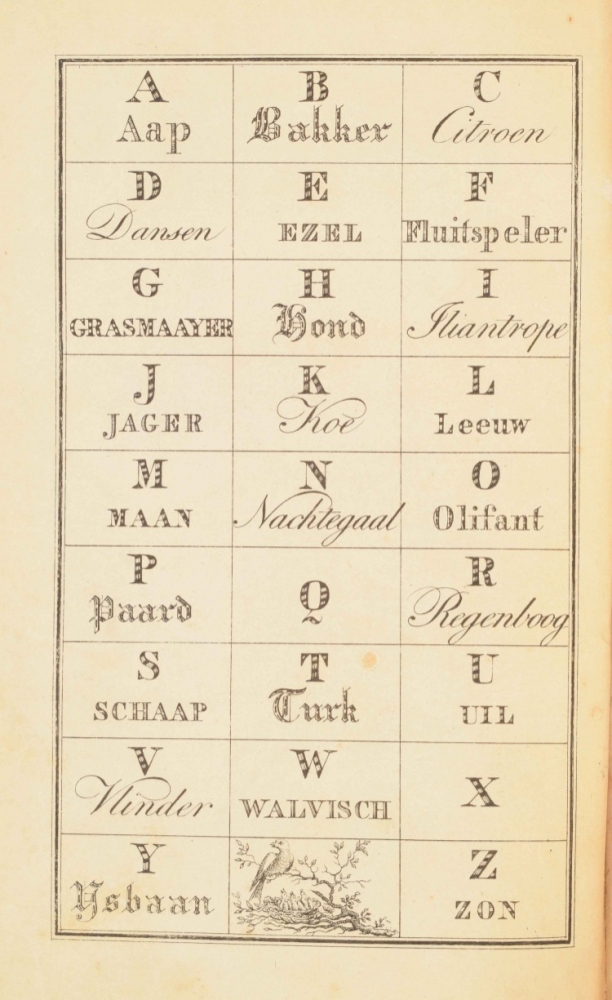 A
Aap
B
Bakker
C
Citroen
D
Dansen
E
EZEL
F
Fluitspeler
G
GRASMAAYER
H
Hond
I
Iliantrope
J
JAGER
K
Koe
L
Leeuw
M
MAAN
N
Nachtegaal
O
Olifant
P
Paard
Q
R
Regenboog
S
SCHAAP
T
Turk
U
UIL
V
Vlinder
W
WALVISCH
X
Y
Ysbaan
Z
ZON